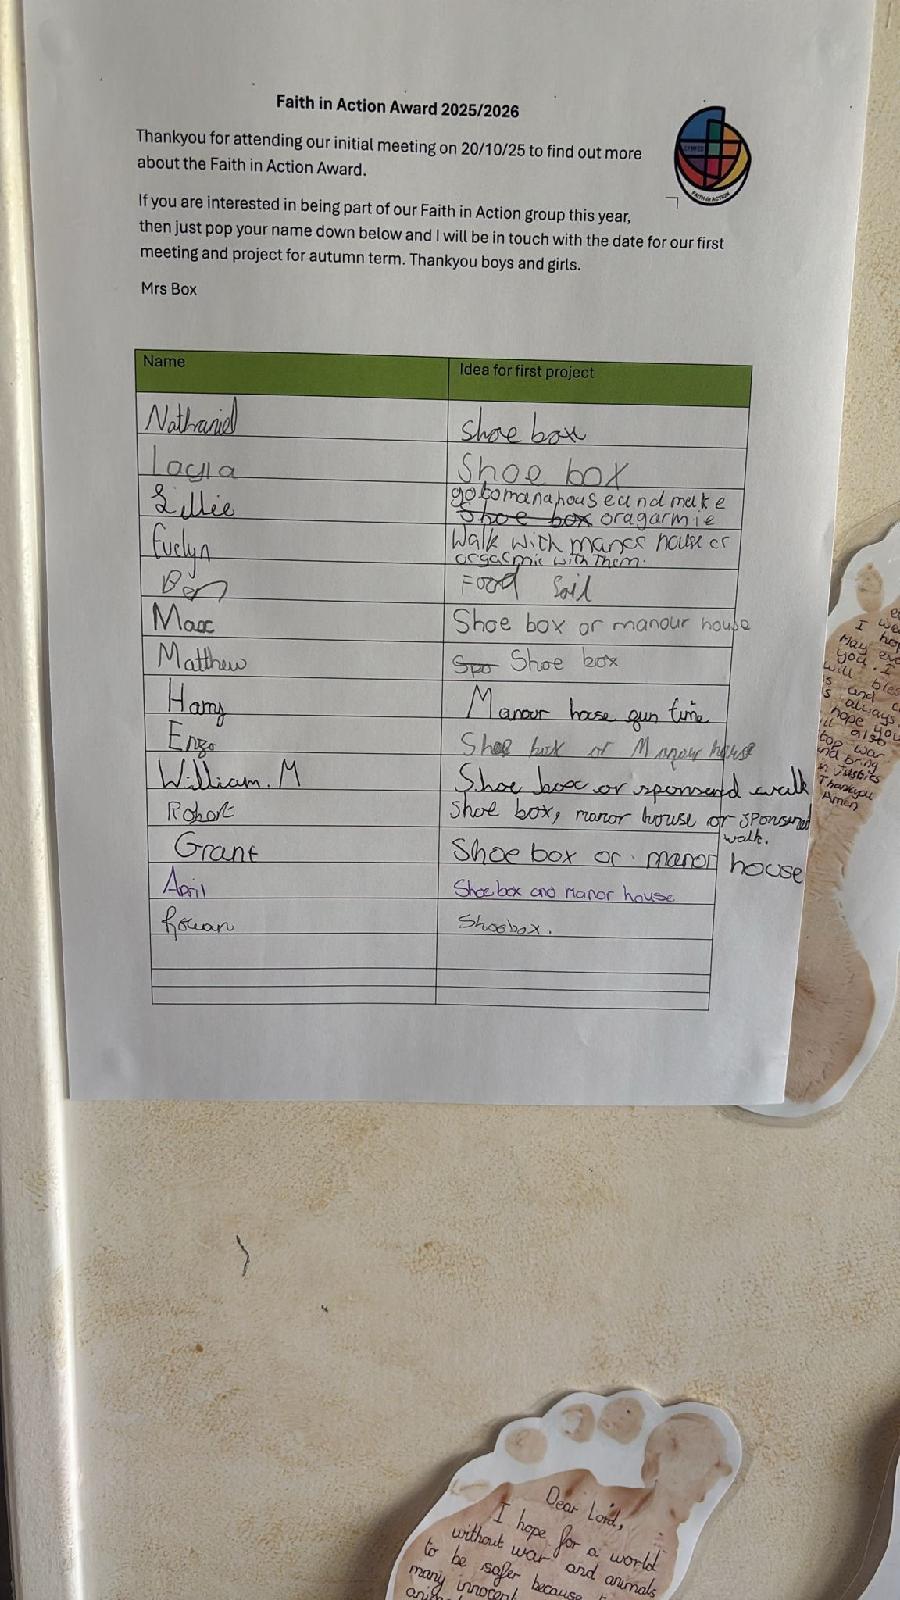 Faith in Action Award 2025/2026
Thankyou for attending our initial meeting on 20/10/25 to find out more
about the Faith in Action Award.
If you are interested in being part of our Faith in Action group this year,
then just pop your name down below and I will be in touch with the date for our first
meeting and project for autumn term. Thankyou boys and girls.
Mrs Box
FAITH IN ACTION
Name Idea for first project
Nathaniel Shoe box
Layla Shoe box
Lillie go to mana house and make
Shoe box oragarmie
Evelyn Walk with maner house or
orgarmie with them.
Food
Max Shoe box or manour house
Matthew Spo Shoe box
Harry Manour hose gun time
Enzo Shoe box or Manour house
William.M Shoe box or sponserd walk
Robert Shoe box, manor house or sponsered
walk.
Grant Shoe box or manor house
April Shoebox and Manor house
Rowan Shoebox.
I
May
you. I
will bles
s and
s always
hope you
also
war
and bring
Thankyou
Amen
Dear Lord,
I hope for a world
without war and animals
to be safer because
many innocent